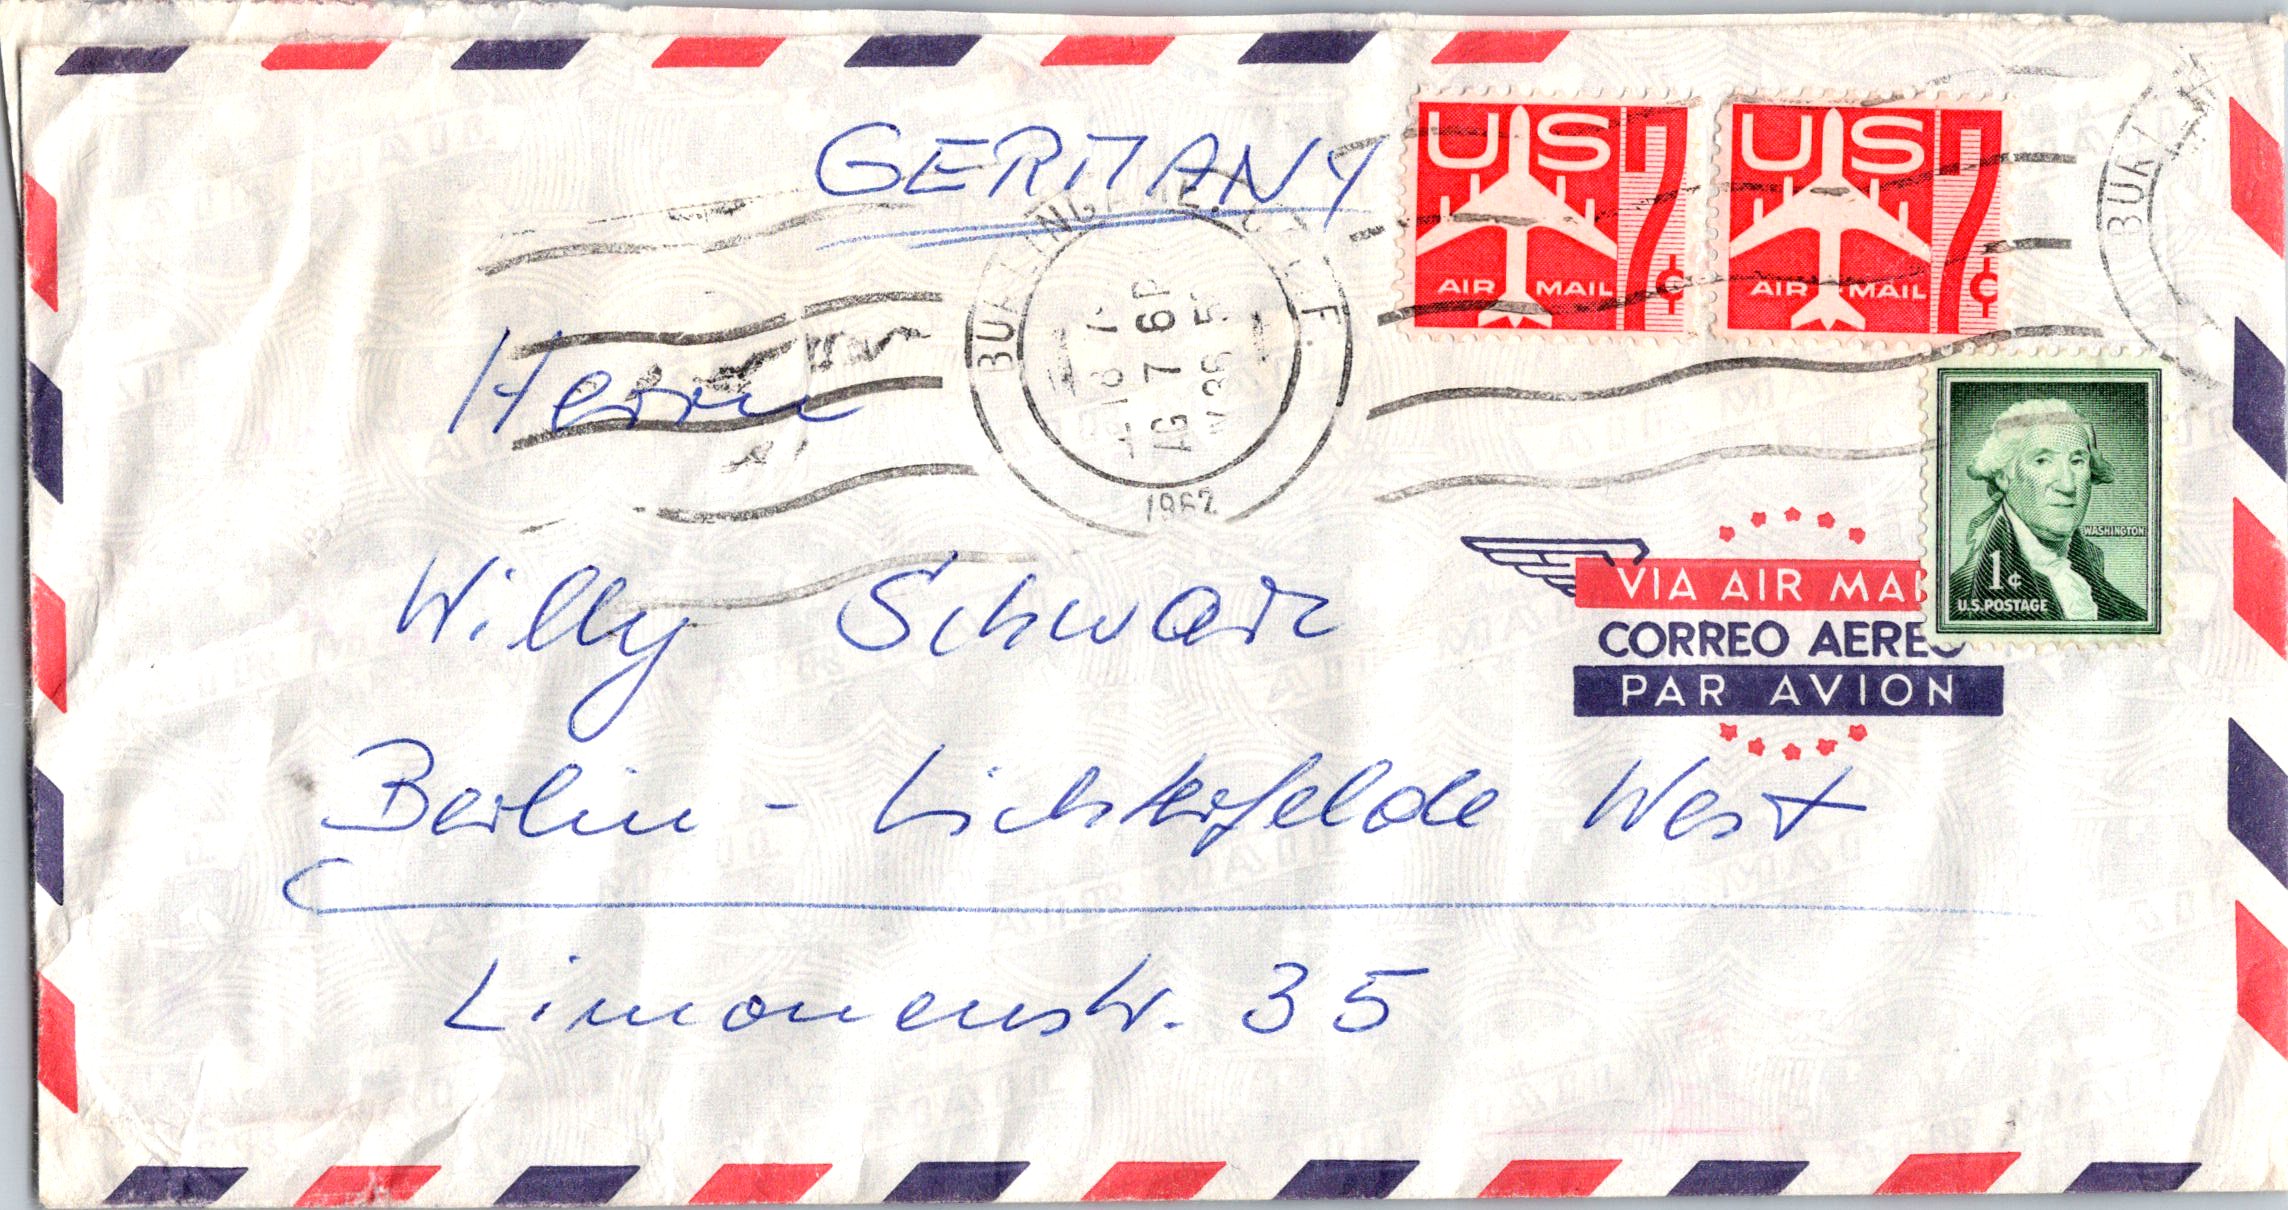 GERMANY
US 7¢
AIR MAIL
US 7¢
AIR MAIL
BURLINGAME, CALIF.
AG 7 6 P
1962
BURL
WASHINGTON
1¢
U.S. POSTAGE
VIA AIR MAI
CORREO AEREO
PAR AVION
Herrn
Willy Schwarz
Berlin - Lichterfelde West
Limonenstr. 35